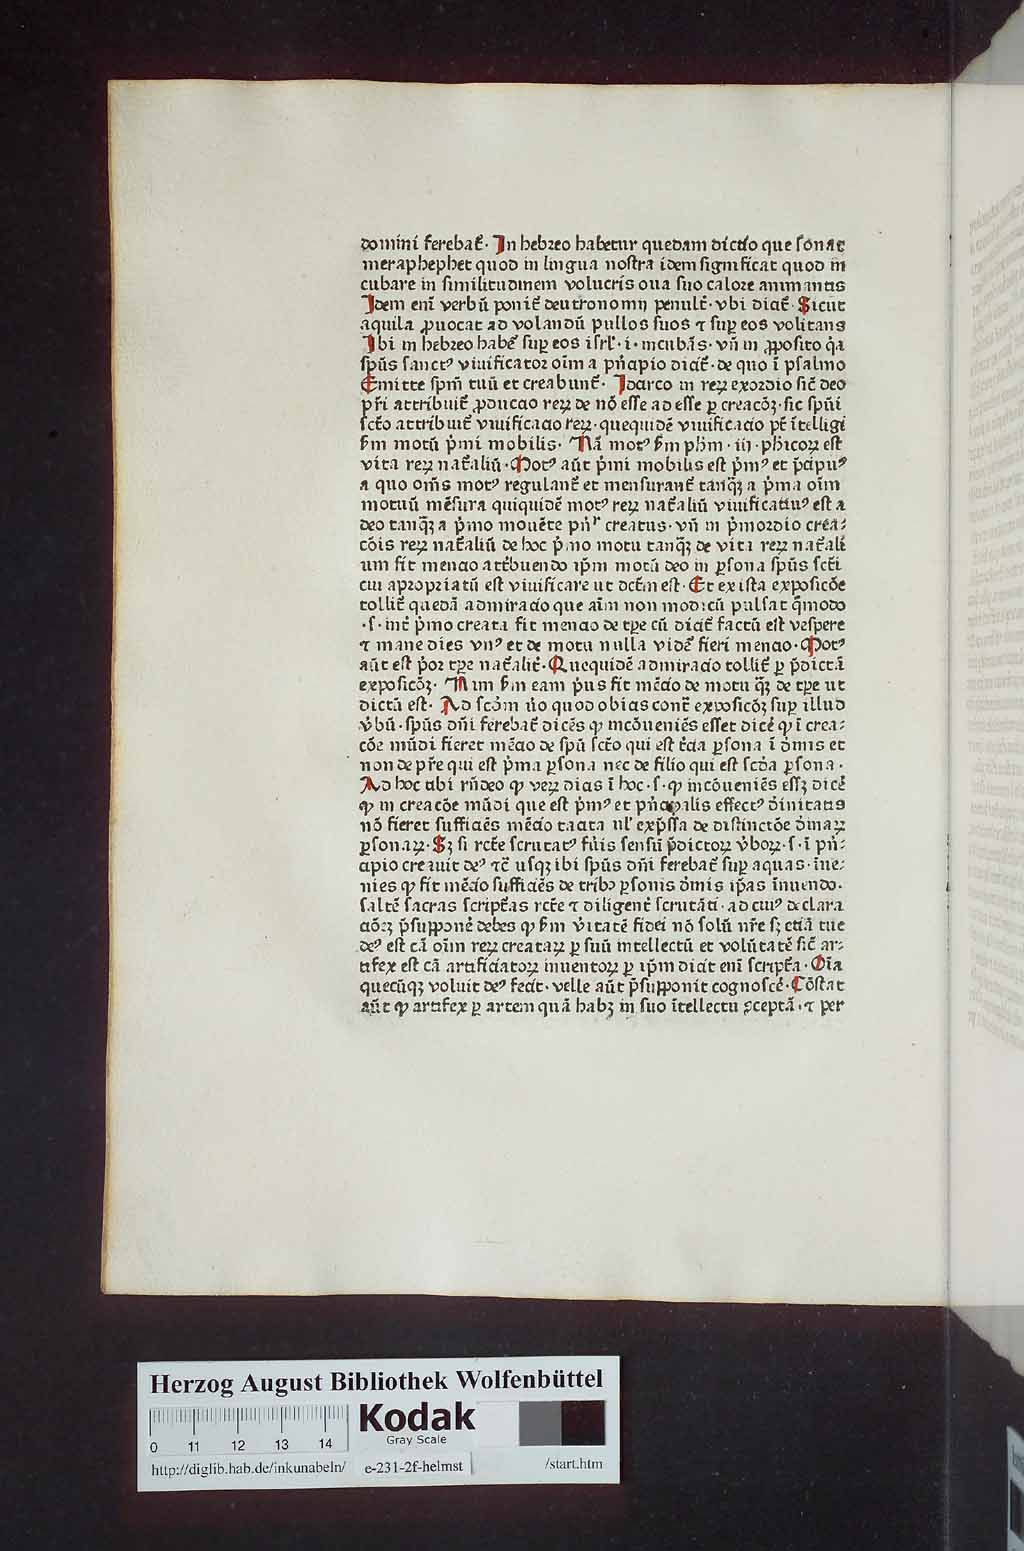 domini ferebat̃. In hebreo habetur quedam dictio que sonat
meraphephet quod in lingua nostra idem significat quod in
cubare in similitudinem volucris oua suo calore animantis
Idem enĩ verbũ ponit̃ deutronomij penult̃. vbi dicit̃. Sicut
aquila ꝓuocat ad volandũ pullos suos ⁊ suꝑ eos volitans
Ibi in hebreo habet̃ suꝑ eos isrl̕. i. incubãs. vñ in ꝓposito q̃a
sp̃us sanctꝰ viuificator oĩm a pñcipio dicit̃. de quo ĩ psalmo
Emitte spm̃ tuũ et creabunt̃. Idcirco in reꝝ exordio sic̃ deo
pr̃i attribuit̃ ꝓductio reꝝ de nõ esse ad esse ꝑ creacõꝫ. sic sp̃ui
scto̕ attribuit̃ viuificacio reꝝ. quequidẽ viuificacio pt̃ ĩtelligi
ẜm motũ p̃mi mobilis. Nã motꝰ ẜm ph̃m. iij. phicoꝝ est
vita reꝝ nat̃aliũ. Motꝰ aũt p̃mi mobilis est p̃mꝰ et p̃cipuꝰ
a quo om̃s motꝰ regulant̃ et mensurant̃ tanq̃ꝫ a p̃ma oĩm
motuũ mẽsura quiquidẽ motꝰ reꝝ nat̃aliũ viuificatiuꝰ est a
deo tanq̃ꝫ a p̃mo mouẽte pñr̕ creatus. vñ in p̃mordio crea⸗
cõis reꝝ nat̃aliũ de hoc p̃mo motu tanq̃ꝫ de vita reꝝ nat̃ali
um fit mencio att̃buendo ip̃m motũ deo in ꝑsona sp̃us sct̃i
cui apropriatũ est viuificare ut dct̃m est. Et ex ista exposicõe
tollit̃ quedã admiracio que aĩm non modicũ pulsat q̃modo
.s. int̃ p̃mo creata fit mencio de tꝑe cũ dicit̃ factũ est vespere
⁊ mane dies vnꝰ et de motu nulla videt̃ fieri mencio. Motꝰ
aũt est p̃or tꝑe nat̃alit̃. Quequidẽ admiracio tollit̃ ꝑ p̃dictã
exposicõꝫ. Nam ẜm eam p̃us fit mẽcio de motu q̃ꝫ de tꝑe ut
dictũ est. Ad scd̃m ṽo quod obicias cont̃ exposicõꝫ suꝑ illud
ṽbũ. sp̃us dñi ferebat̃ dicẽs ꝙ incõueniẽs esset dicẽ ꝙ ĩ crea⸗
cõe mũdi fieret mẽcio de sp̃u sct̃o qui est t̃cia ꝑsona ĩ d̃inis et
non de pr̃e qui est p̃ma ꝑsona nec de filio qui est scd̃a ꝑsona.
Ad hoc tibi rñdeo ꝙ veꝝ dicis ĩ hoc .s. ꝙ incõueniẽs esꝫ dicẽ
ꝙ in creacõe mũdi que est p̃mꝰ et pñcipalis effectꝰ d̃initatis
nõ fieret sufficiẽs mẽcio tacita ul̕ exp̃ssa de distinctõe d̃inaꝝ
ꝑsonaꝝ. Sꝫ si rct̃e scrutatꝰ fũis sensũ p̃dictoꝝ ṽboꝝ .s. ĩ pñ⸗
cipio creauit deꝰ ⁊c̃ usqꝫ ibi sp̃us dñi ferebat̃ suꝑ aquas. ĩue⸗
nies ꝙ fit mẽcio sufficiẽs de tribꝰ ꝑsonis d̃inis ip̃as ĩnuendo.
saltẽ sacras script̃as rct̃e ⁊ diligent̃ scrutãti. ad cuiꝰ declara
ciõeꝫ p̃supponẽ debes ꝙ ẜm ṽitatẽ fidei nõ solũ nr̃e sꝫ etiã tue
deꝰ est cã oĩm reꝝ creataꝝ ꝑ suũ intellectũ et volũtatẽ sic̃ ar⸗
tifex est cã artificiatoꝝ inuentoꝝ ꝑ ip̃m dicit enĩ script̃a. Oĩa
quecũqꝫ voluit deꝰ fecit. velle aũt p̃supponit cognoscẽ. Cõstat
aũt ꝙ artifex ꝑ artem quã habꝫ in suo ĩtellectu ꝯceptã. ⁊ per
Herzog August Bibliothek Wolfenbüttel
Kodak
Gray Scale
0 11 12 13 14
http://diglib.hab.de/inkunabeln/ e-231-2f-helmst /start.htm